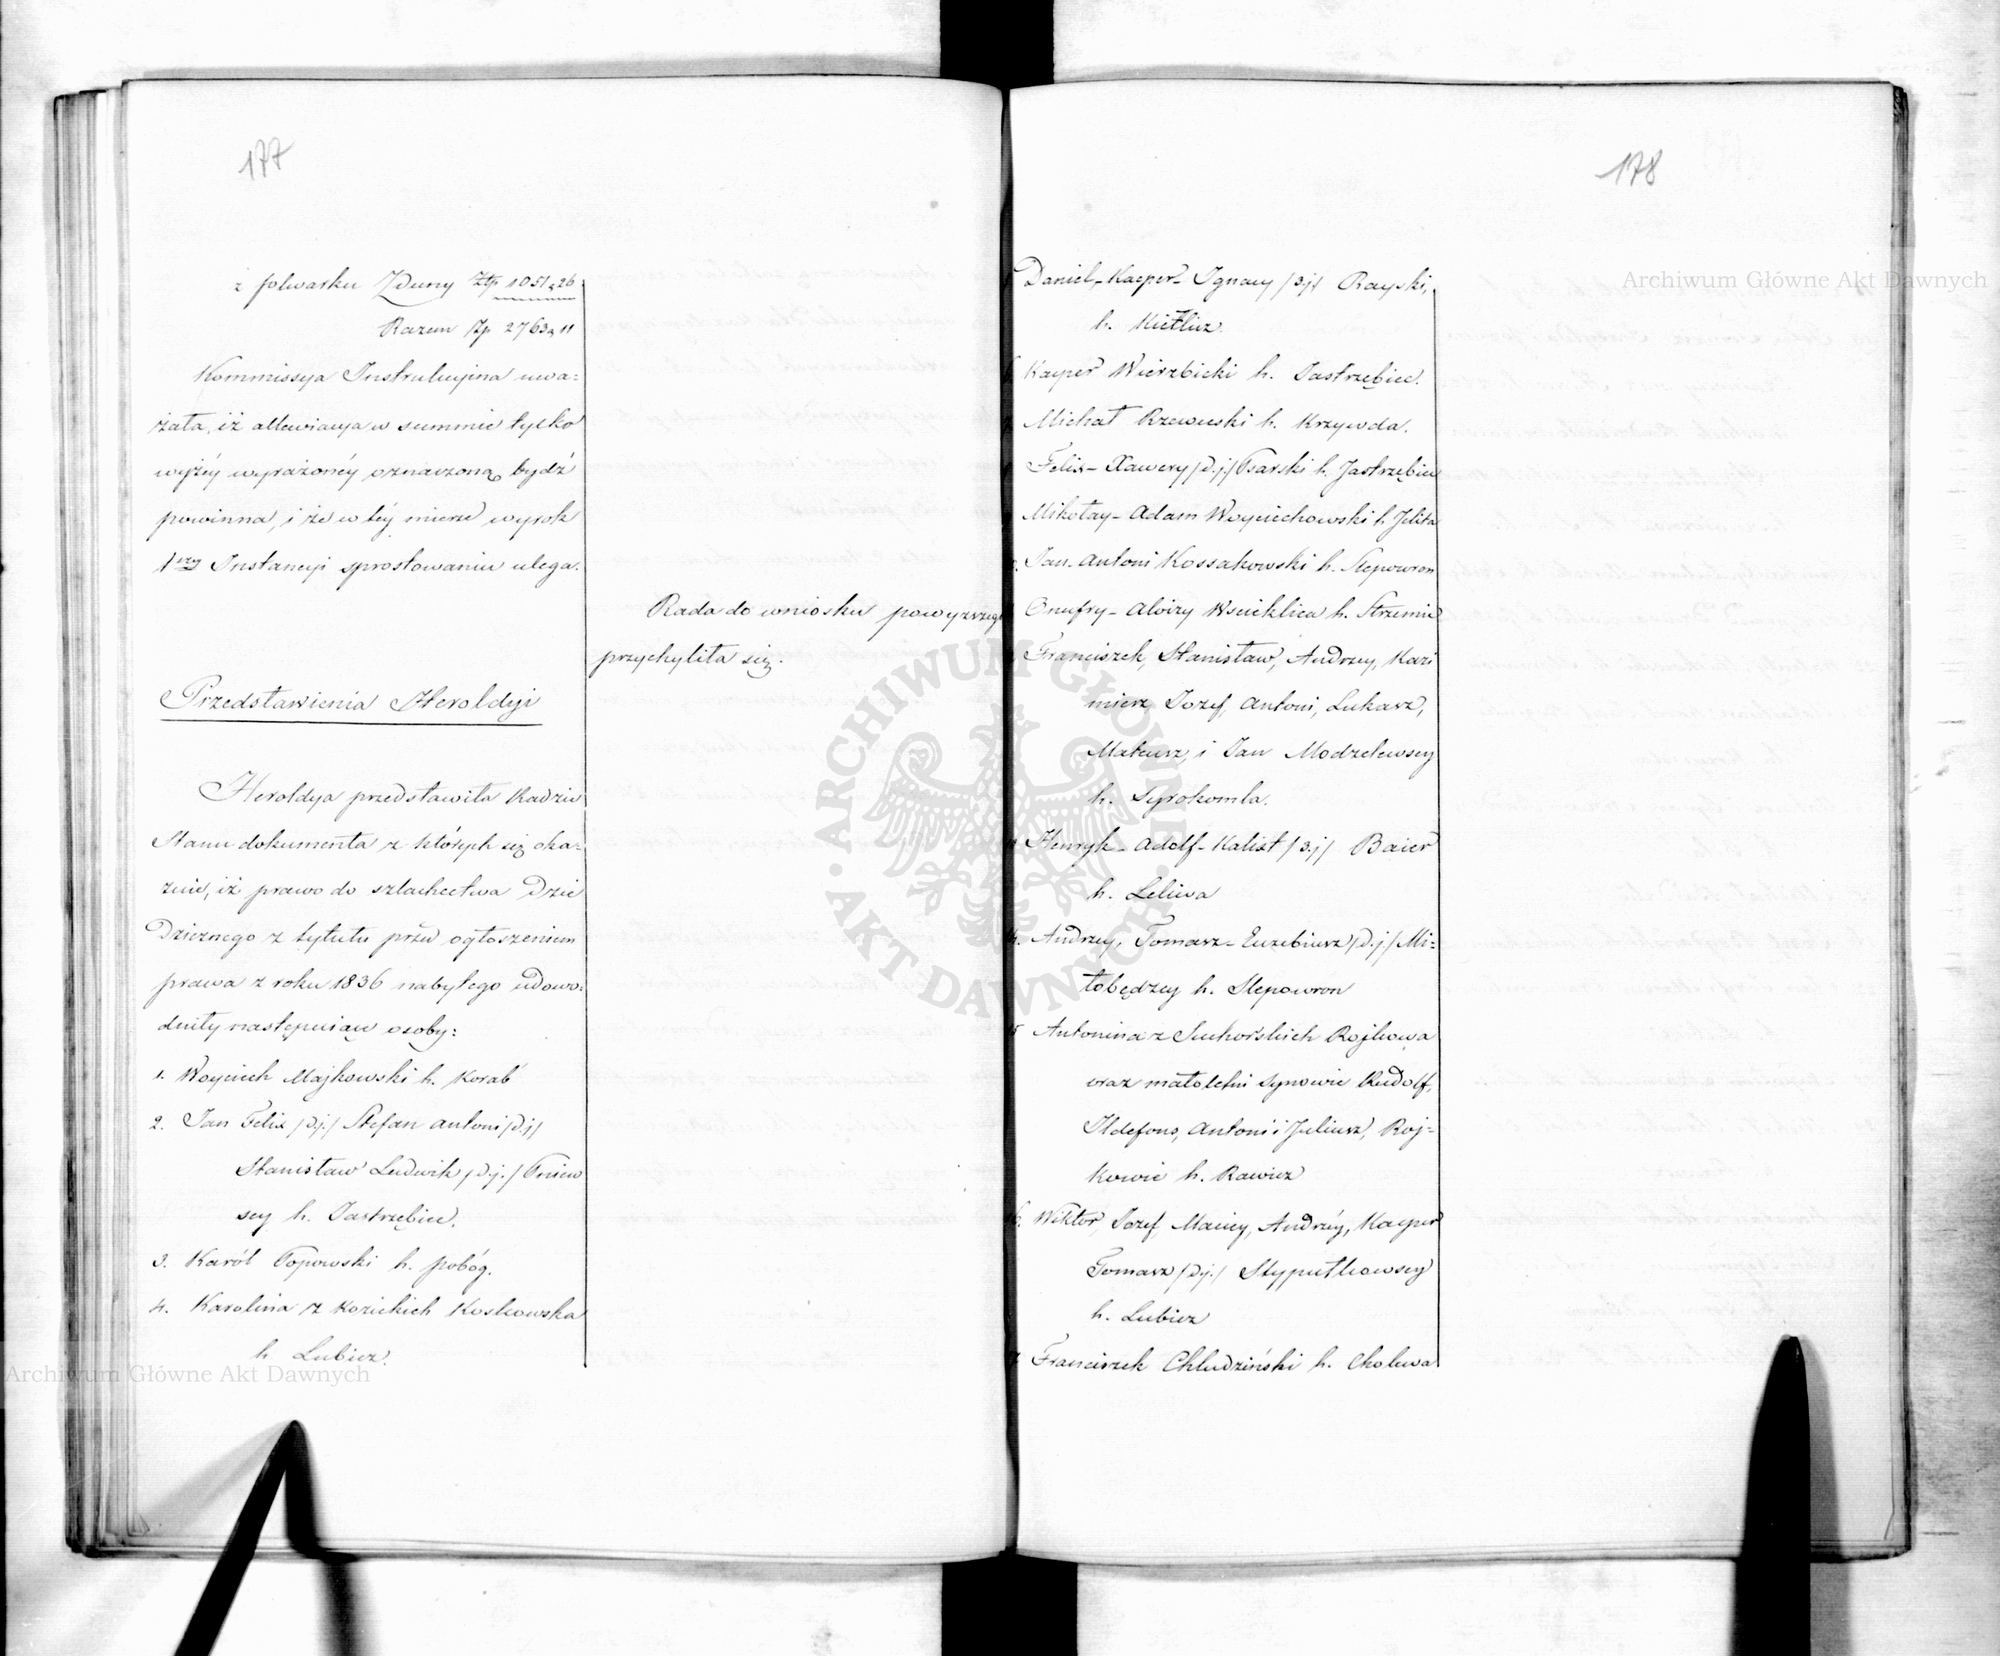 177
z folwarku Zduny Złp 1051,26
Razem Zp 2763,11
Kommissya Instrukcyina uwa-
żała, iż allewiacya w summie tylko
wyżéy wyrażonéy oznaczoną bydź
powinna, i że w téy mierze wyrok
1wszy Instancyi sprostowaniu ulega.
Rada do wniosku powyższego
przychyliła się.
Przedstawienia Heroldyi
Heroldya przedstawiła Radzie
Stanu dokumenta z których się oka-
zuie, iż prawo do szlachectwa Dzie
dzicznego z tytułu przed ogłoszeniem
prawa z roku 1836 nabytego udowo-
dniły następuiące osoby:
1. Woyciech Majkowski h. Korab
2. Jan Felix /d.j./ Stefan Antoni /d.j/
Stanisław Ludwik /d.j./ Gniew
scy h. Jastrzębiec.
3. Karól Popowski h. pobóg.
4. Karolina z Kozickich Koskowska
h Lubicz.
178
Daniel-Kacper-Ignacy /3.j/ Rayski,
h. Kietlicz.
Kacper Wierzbicki h. Jastrzębiec.
Michał Rzewuski h. Krzywda.
Felix-Xawery /d.j./ Psarski h. Jastrzębiec
Mikołay-Adam Woyciechowski h. Jelita
Jan-Antoni Kossakowski h. Slepowron
Onufry-Aloizy Wscieklica h. Strzemie
Franciszek, Stanisław, Andrzey, Kazi
mierz, Jozef, Antoni, Lukasz,
Mateusz, i Jan Modzelewscy
h. Syrokomla.
Henryk-Adolf-Kalixt /3.j/ Baier
h. Leliwa
Andrzey, Tomasz-Euzebiusz /d.j/ Mi-
łobędzcy h. Slepowron
Antonina z Suchorskich Rojkowa
wraz małoletni Synowie Rudolf,
Ildefons, Antoni i Juliusz, Roj-
kowie h. Rawicz
16. Wiktor, Jozef, Maciey, Andrzéy, Kacper
Tomasz /d.j./ Stypułkowscy
h. Lubicz
Franciszek Chludziński h. Cholewa
Archiwum Główne Akt Dawnych
Archiwum Główne Akt Dawnych
ARCHIWUM GŁÓWNE · AKT DAWNYCH ·